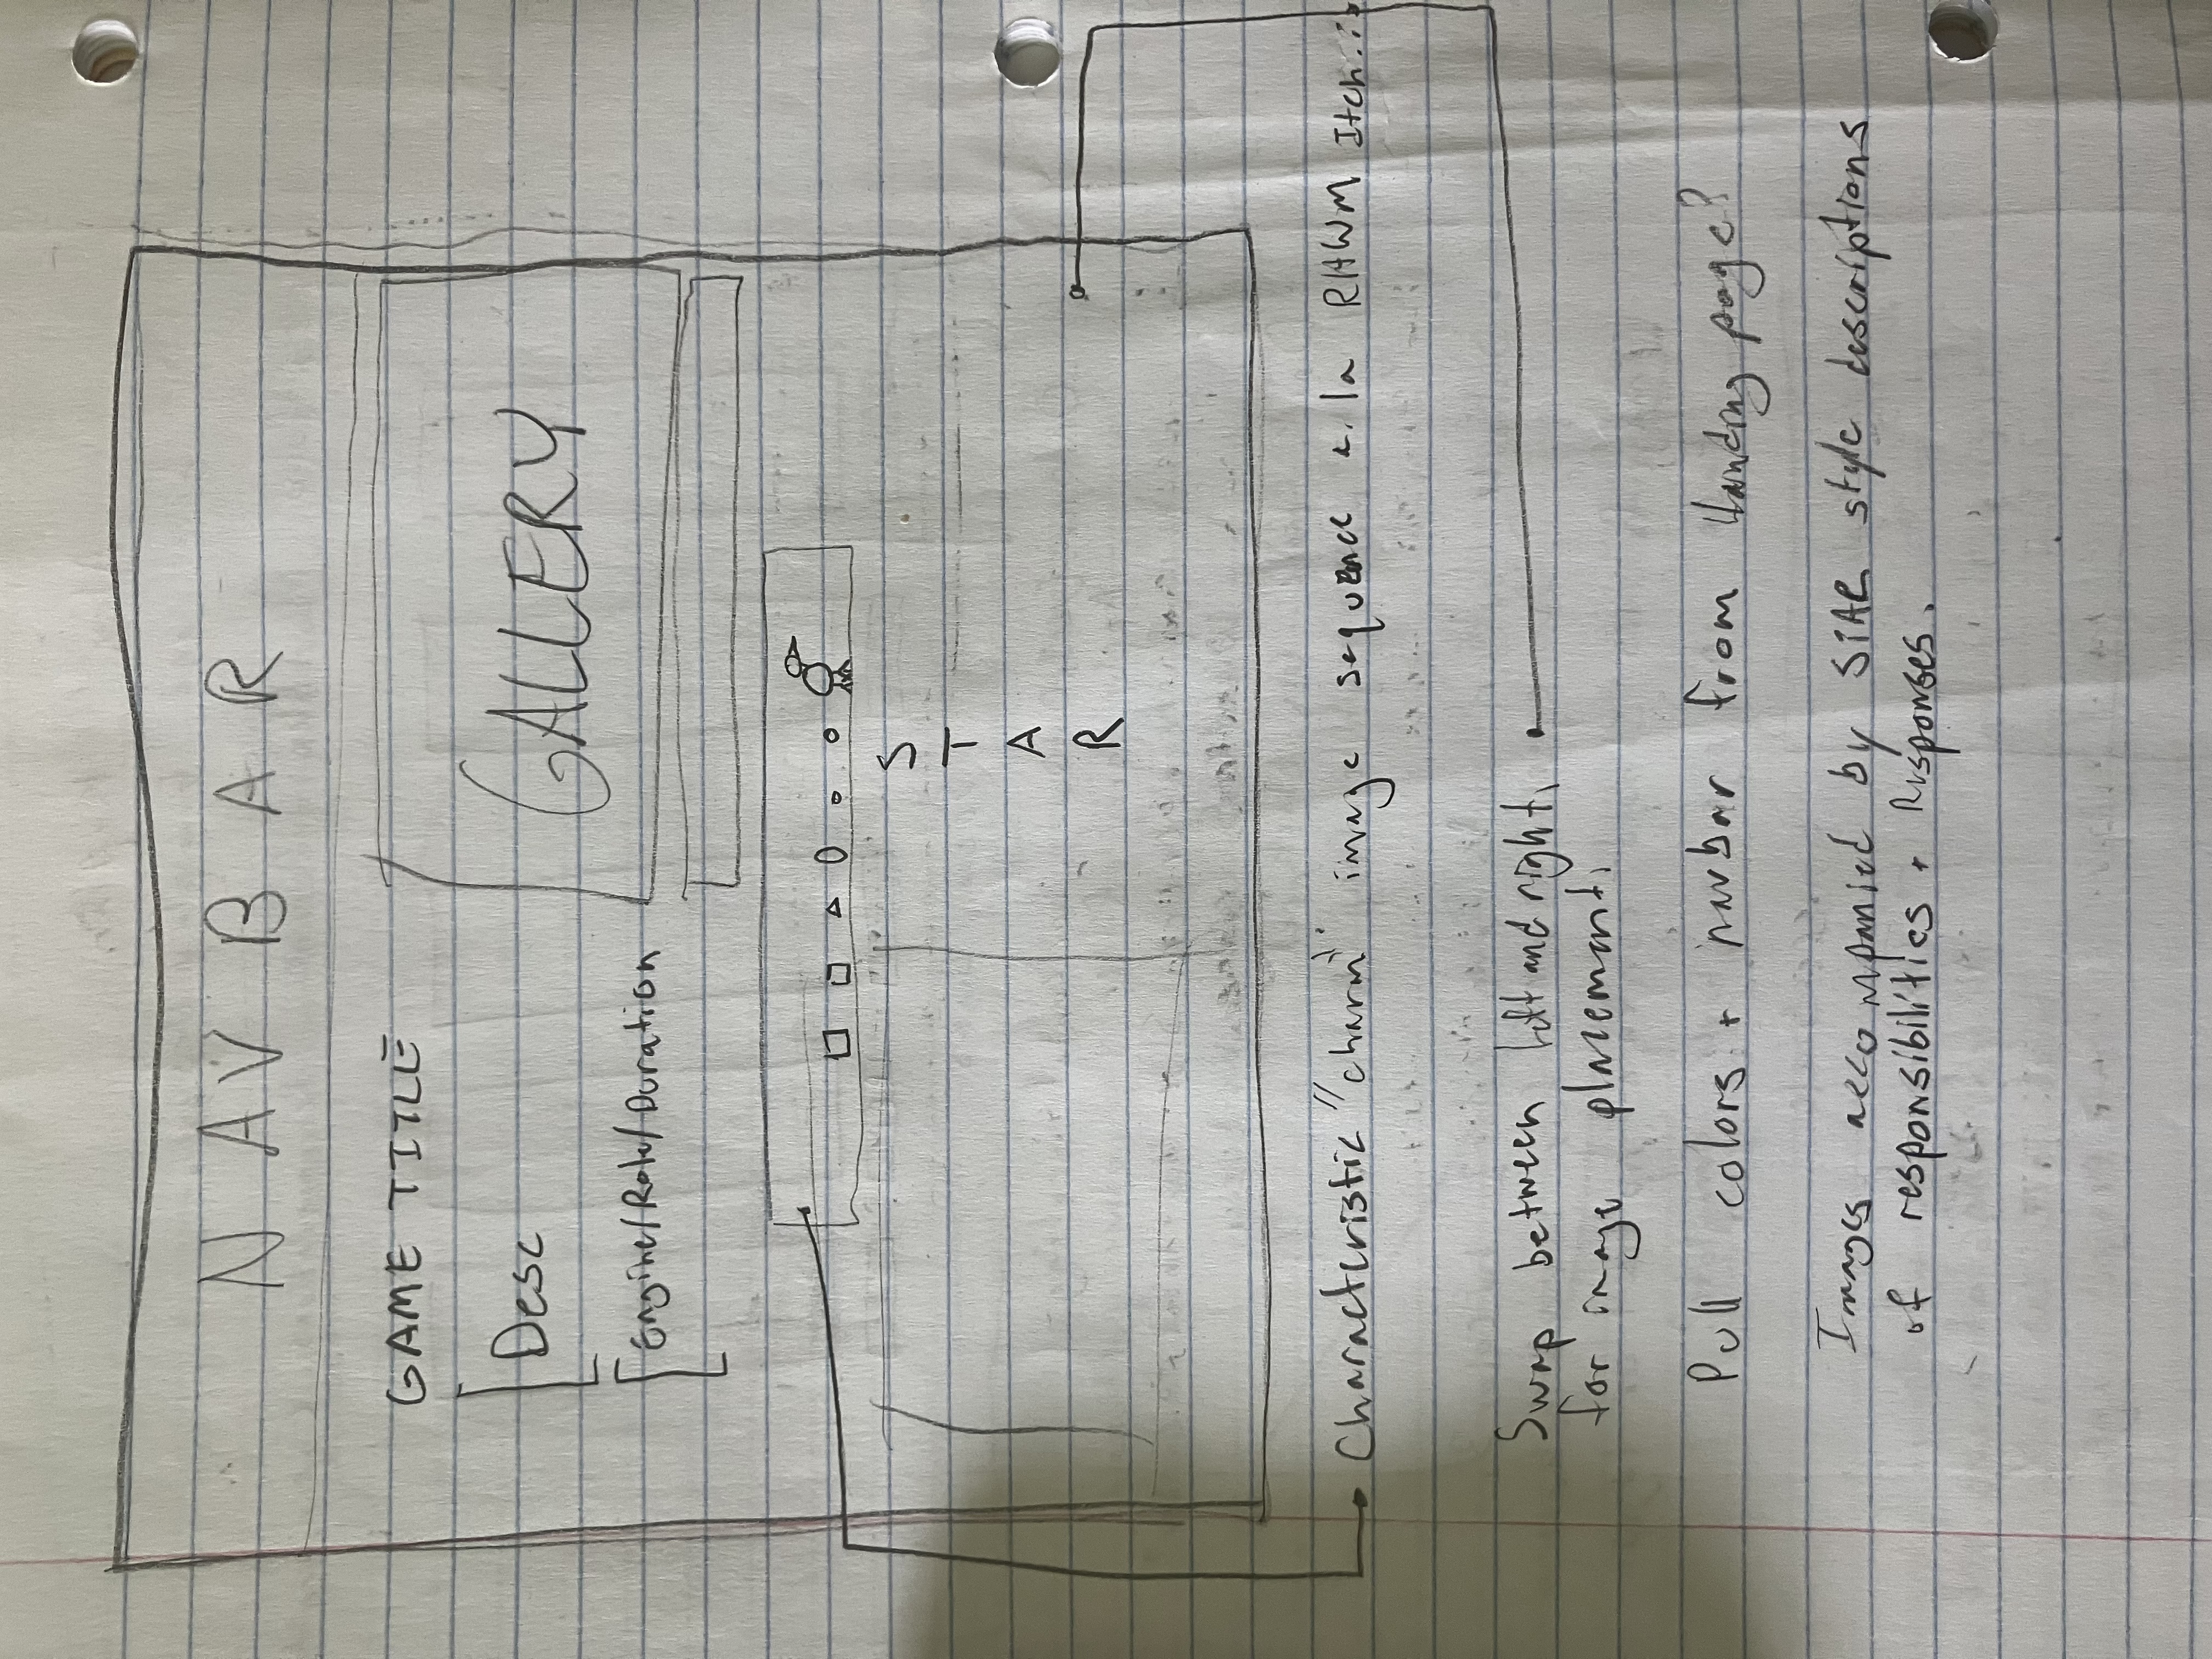 NAVBAR
GAME TITLE
Desc
Engine/Role/Duration
GALLERY
S
T
A
R
Characteristic "charm" image sequence a.la RHWM Itch.io
Swap between left and right
for image placement.
Pull colors + navbar from landing page?
Images accompanied by STAR style descriptions
of responsibilities + Responses.